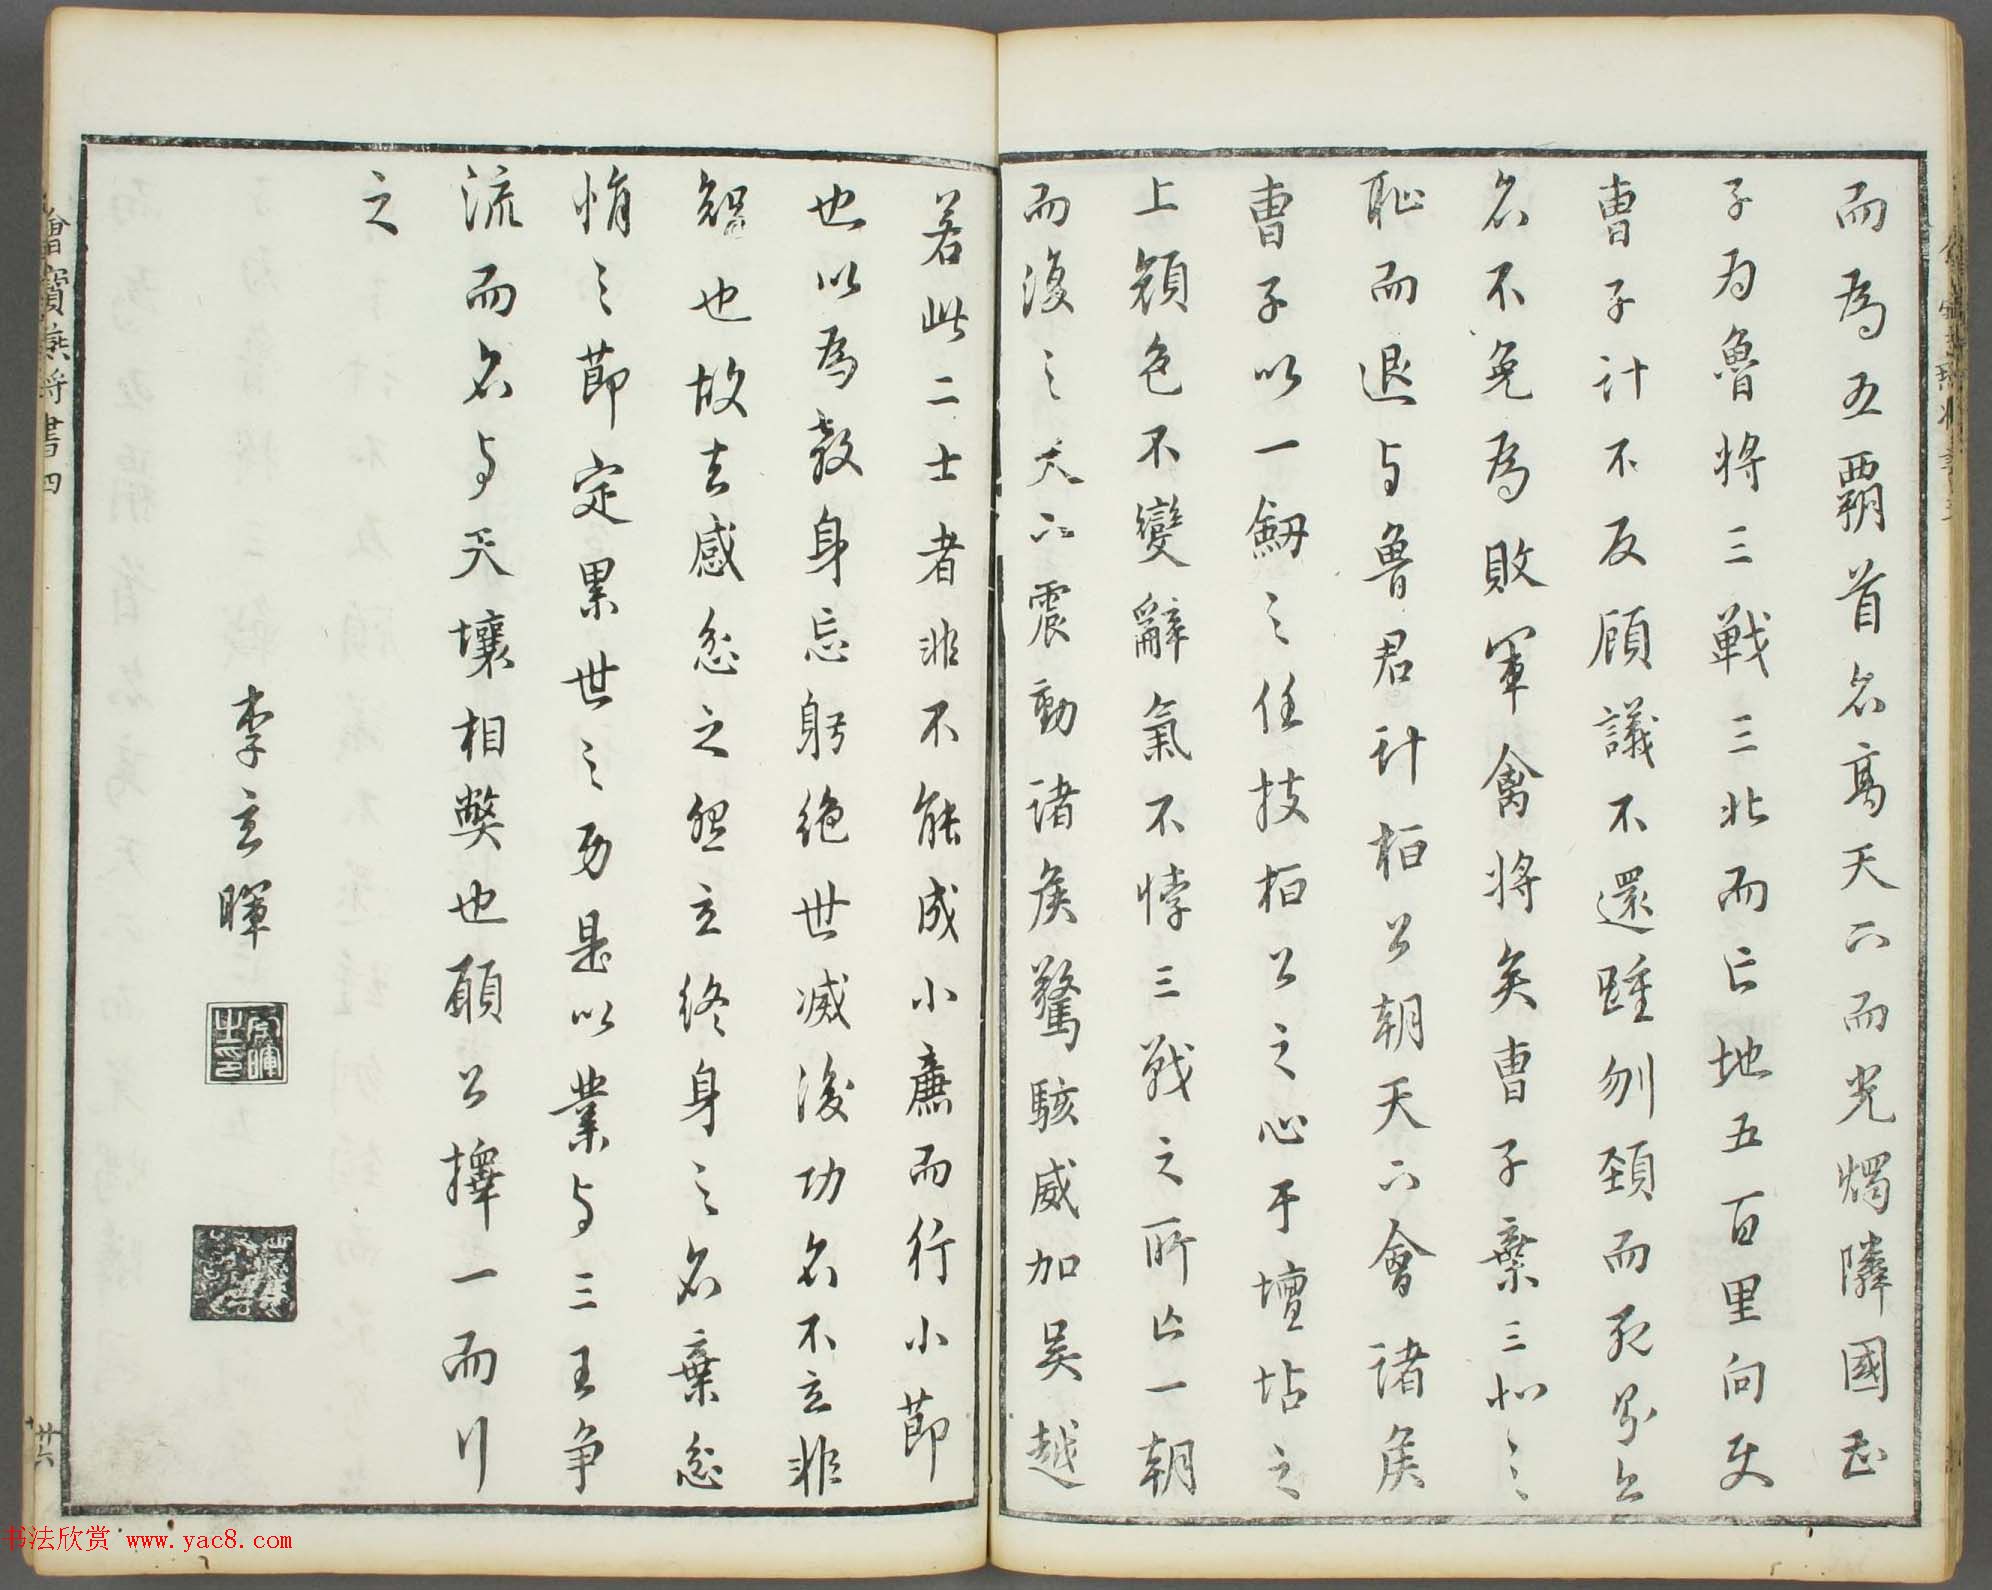 而為五霸首名高天下而光燭隣國曹
子為魯將三戰三北而亡地五百里向使
曹子計不反顧議不還踵刎頸而死則亦
名不免為敗軍禽將矣曹子棄三北之
恥而退与魯君計桓公朝天下會諸侯
曹子以一劒之任技桓公之心于壇坫之
上顏色不變辭氣不悖三戰之所亡一朝
而復之天下震動諸侯驚駭威加吳越
若此二士者非不能成小廉而行小節
也以為殺身忘躬絶世滅後功名不立非
智也故去感忿之怨立終身之名棄忿
悁之節定累世之功是以業与三王争
流而名与天壤相獘也願公擇一而行
之
李玄暉
玄暉之印
遺燕將書四
廿六
书法欣赏 www.yac8.com